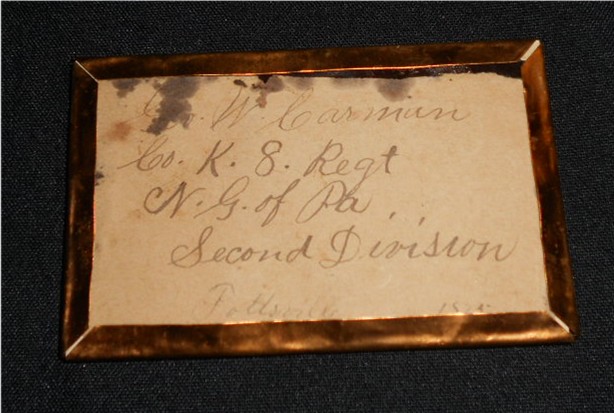 Geo. W. Carman
Co. K. 8. Regt
N. G. of Pa
Second Division
Pottsville